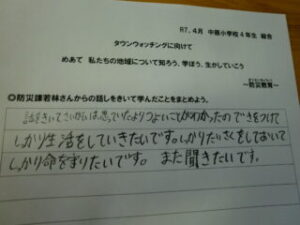 R7.4月 中原小学校4年生 総合
タウンウォッチングに向けて
めあて 私たちの地域について知ろう、学ぼう、生かしていこう
~防災教育~
◎防災課若林さんからの話しをきいて学んだことをまとめよう。
話をきいてさいがいは思っていたよりつよいことがわかったので きをつけて
しっかり生活をしていきたいです。しっかりたいさくをしておいて
しっかり命をまもりたいです。また聞きたいです。